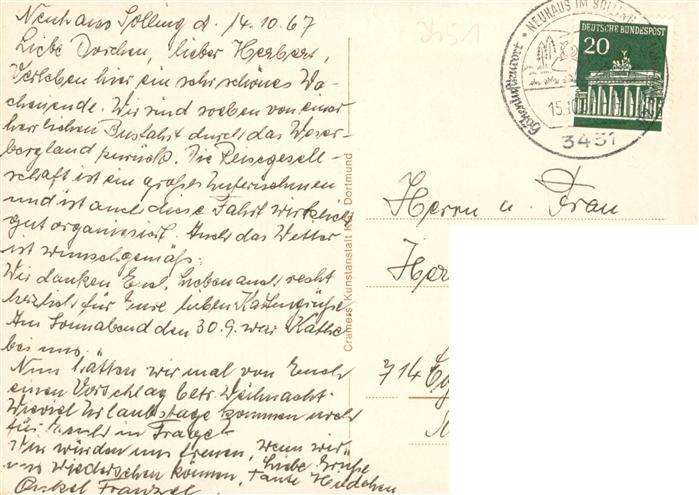 Neuhaus Solling d. 14.10.67
Liebe Dorchen, lieber Herbert,
Verleben hier ein sehr schönes Wo-
chenende. Wir sind soeben von einer
herrlichen Busfahrt durch das Weser-
bergland zurück. Die Reisegesell-
schaft ist ein großes Unternehmen
und ist auch diese Fahrt wirklich
gut organisiert. Auch das Wetter
ist wunschgemäß.
Wir danken Euch Lieben auch recht
herzlich für Eure lieben Kartengrüße
Am Sonnabend den 30.9. war Käthe
bei uns.
Nun hätten wir mal von Euch
einen Vorschlag betr. Weihnacht.
Wieviel Urlaubstage kommen
für Euch in Frage?
Wir würden uns freuen, wenn wir
uns wiedersehen können, Liebe Grüße
Tante Hedchen
Onkel Franzel
Cramers Kunstanstalt KG, Dortmund
3451
NEUHAUS IM SOLLING
Höhenluftkurort
15.10
3451
DEUTSCHE BUNDESPOST
20
Herrn u. Frau
Her
714